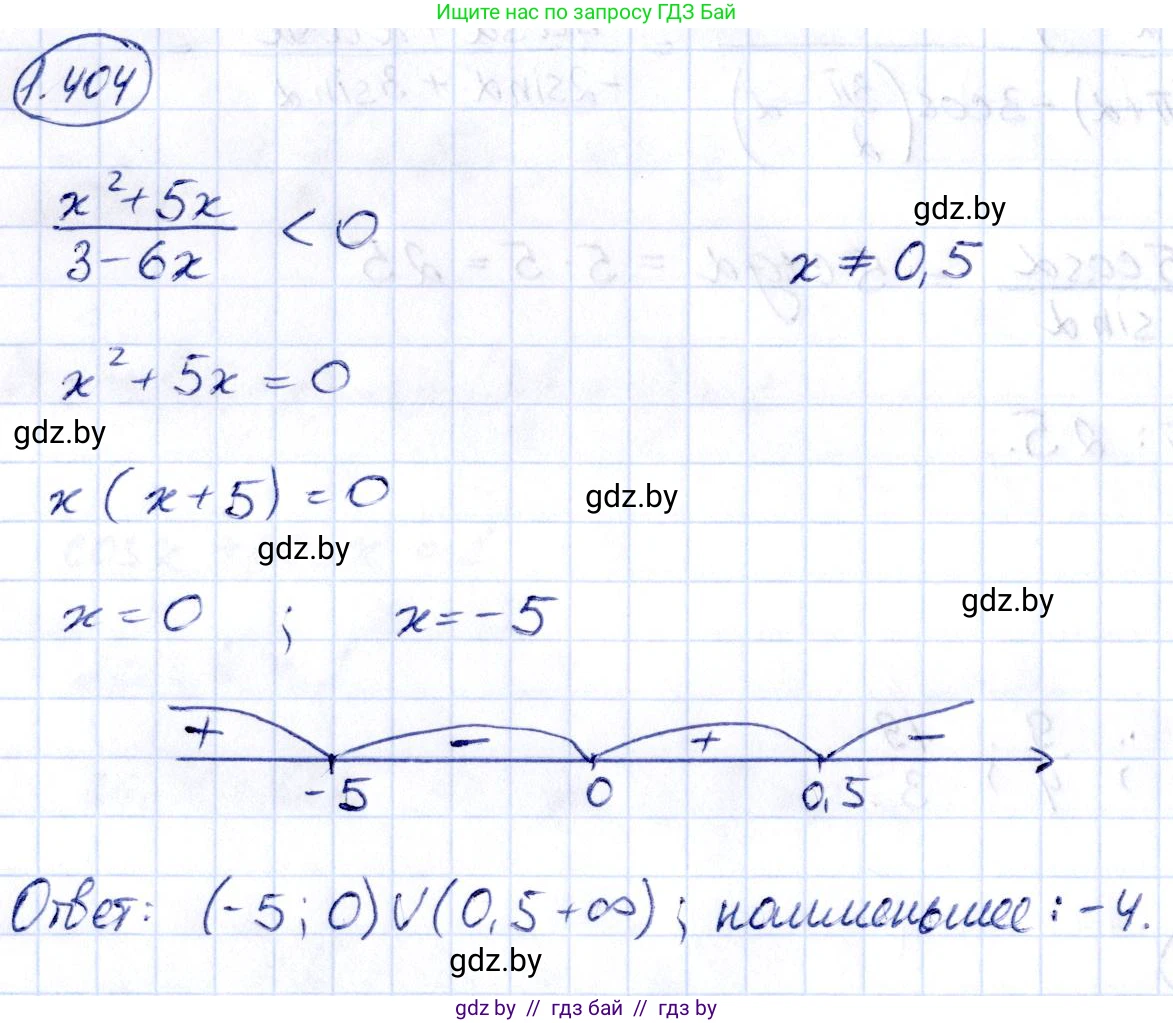 Ищите нас по запросу ГДЗ Бай
1.404
(x²+5x)/(3-6x) < 0
gdz.by
x ≠ 0,5
x²+5x=0
gdz.by
x(x+5)=0
gdz.by
gdz.by
x=0 ; x=-5
gdz.by
+ - + -
-5 0 0,5
Ответ: (-5; 0)∨(0,5+∞); наименьшее: -4.
gdz.by
gdz.by // гдз бай // гдз by